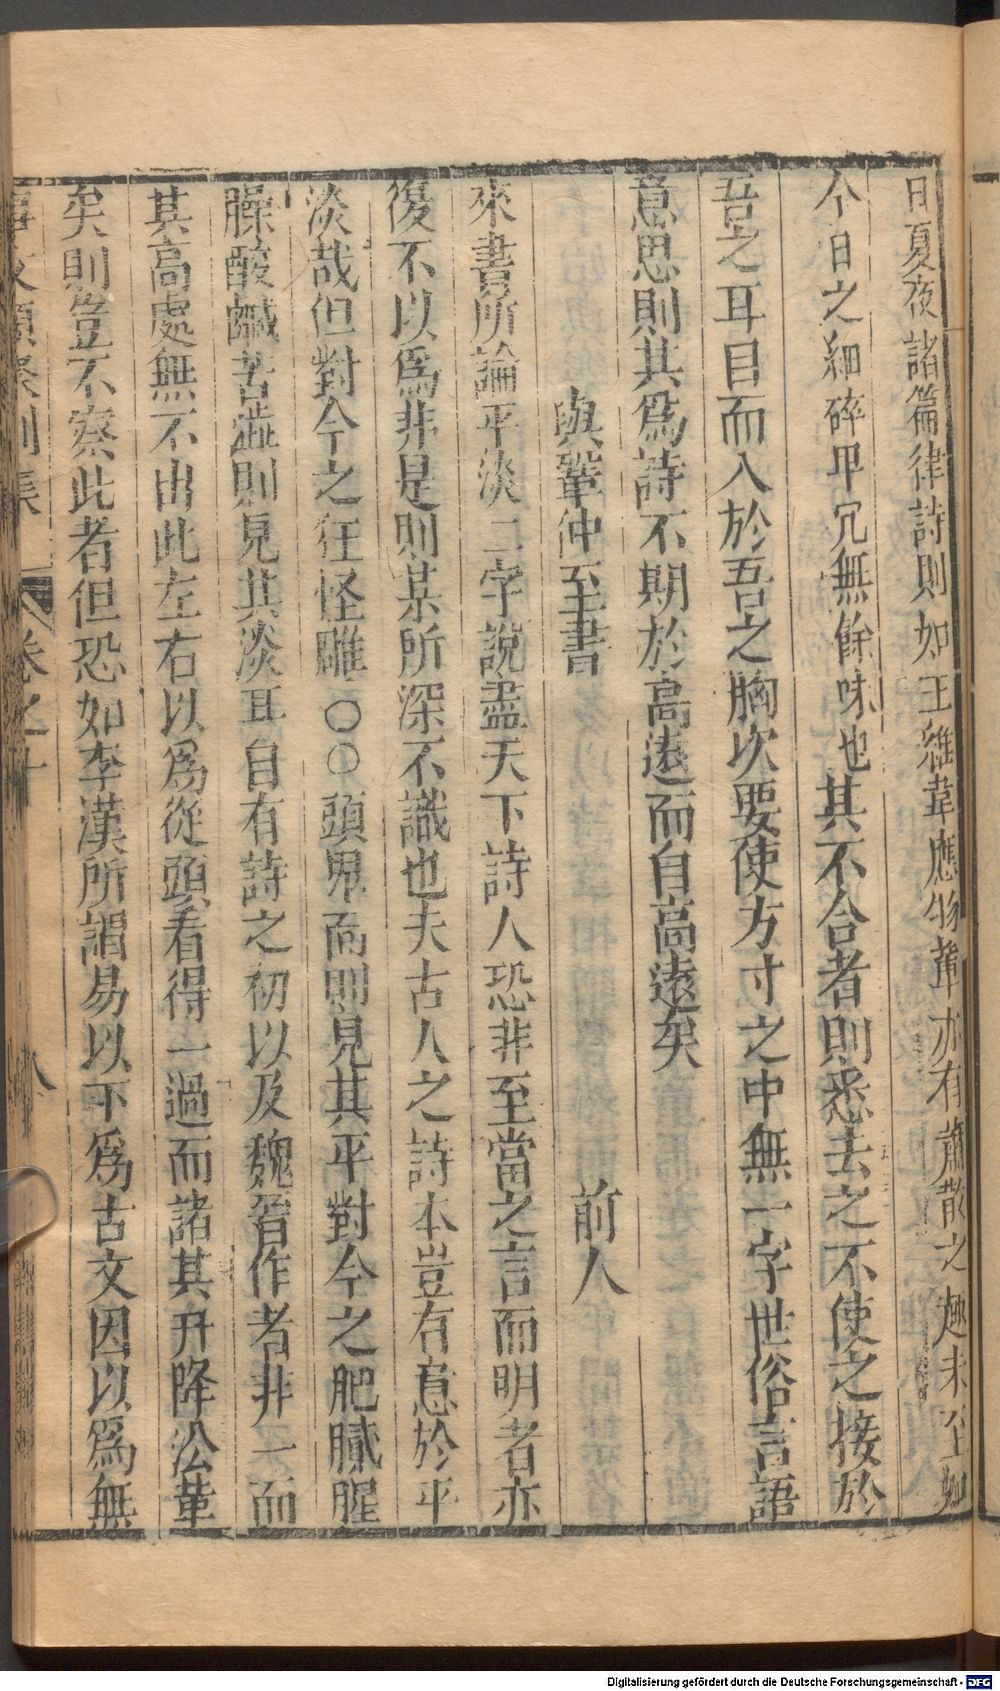 日夏夜諸篇律詩則如王維韋應物輩亦有蕭散之趣未至如
今日之細碎卑冗無餘味也其不合者則悉去之不使之接於
吾之耳目而入於吾之胸次要使方寸之中無一字世俗言語
意思則其為詩不期於高遠而自高遠矣
與鞏仲至書 前人
來書所論平淡二字說盡天下詩人恐非至當之言而明者亦
復不以爲非是則某所深不識也夫古人之詩本豈有意於平
淡哉但對今之狂怪雕〇〇頭鬼面則見其平對今之肥膩腥
臊酸鹹苦澁則見其淡耳自有詩之初以及魏晉作者非一而
其高處無不出此左右以爲從頭看得一過而諸其升降沿革
矣則豈不察此者但恐如李漢所謂易以下爲古文因以爲無
事文類聚別集 卷之十 八
Digitalisierung gefördert durch die Deutsche Forschungsgemeinschaft - DFG